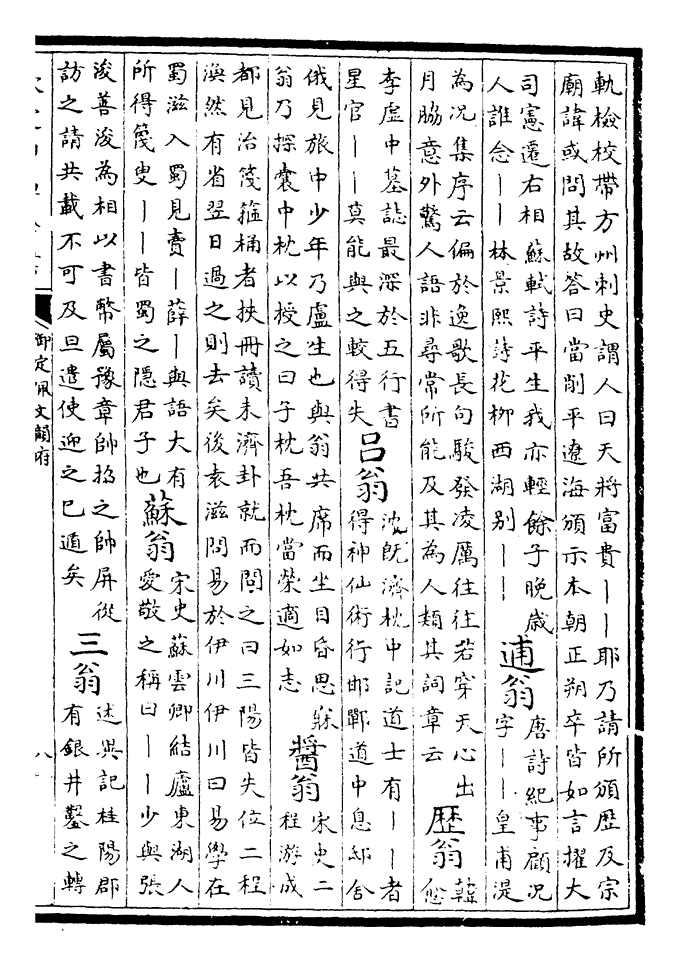 軌檢校帶方州刺史謂人曰天將富貴――耶乃請所頒歷及宗
廟諱或問其故答曰當削平遼海頒示本朝正朔卒皆如言擢大
司憲遷右相 蘇軾詩平生我亦輕餘子晚歲
人誰念――林景熙詩花柳西湖别――
逋翁
唐詩紀事顧況
字――皇甫湜
為况集序云偏於逸歌長句駿發凌厲往往若穿天心出
月脇意外驚人語非尋常所能及其為人類其詞章云
歷翁
韓愈
李虛中墓誌最深於五行書
星官――莫能與之較得失
呂翁
沈既濟枕中記道士有――者
得神仙術行邯鄲道中息邸舍
俄見旅中少年乃盧生也與翁共席而坐目昏思寐
翁乃探囊中枕以授之曰子枕吾枕當榮適如志
醬翁
宋史二
程游成
都見治篾箍桶者挾冊讀未濟卦就而問之曰三陽皆失位二程
渙然有省翌日過之則去矣後袁滋問易於伊川伊川曰易學在
蜀滋入蜀見賣―薛―與語大有
所得篾叟――皆蜀之隱君子也
蘇翁
宋史蘇雲卿結廬東湖人
愛敬之稱曰――少與張
浚善浚為相以書幣屬豫章帥招之帥屏從
訪之請共載不可及旦遣使迎之已遁矣
三翁
述異記桂陽郡
有銀井鑿之轉
御定佩文韻府
八